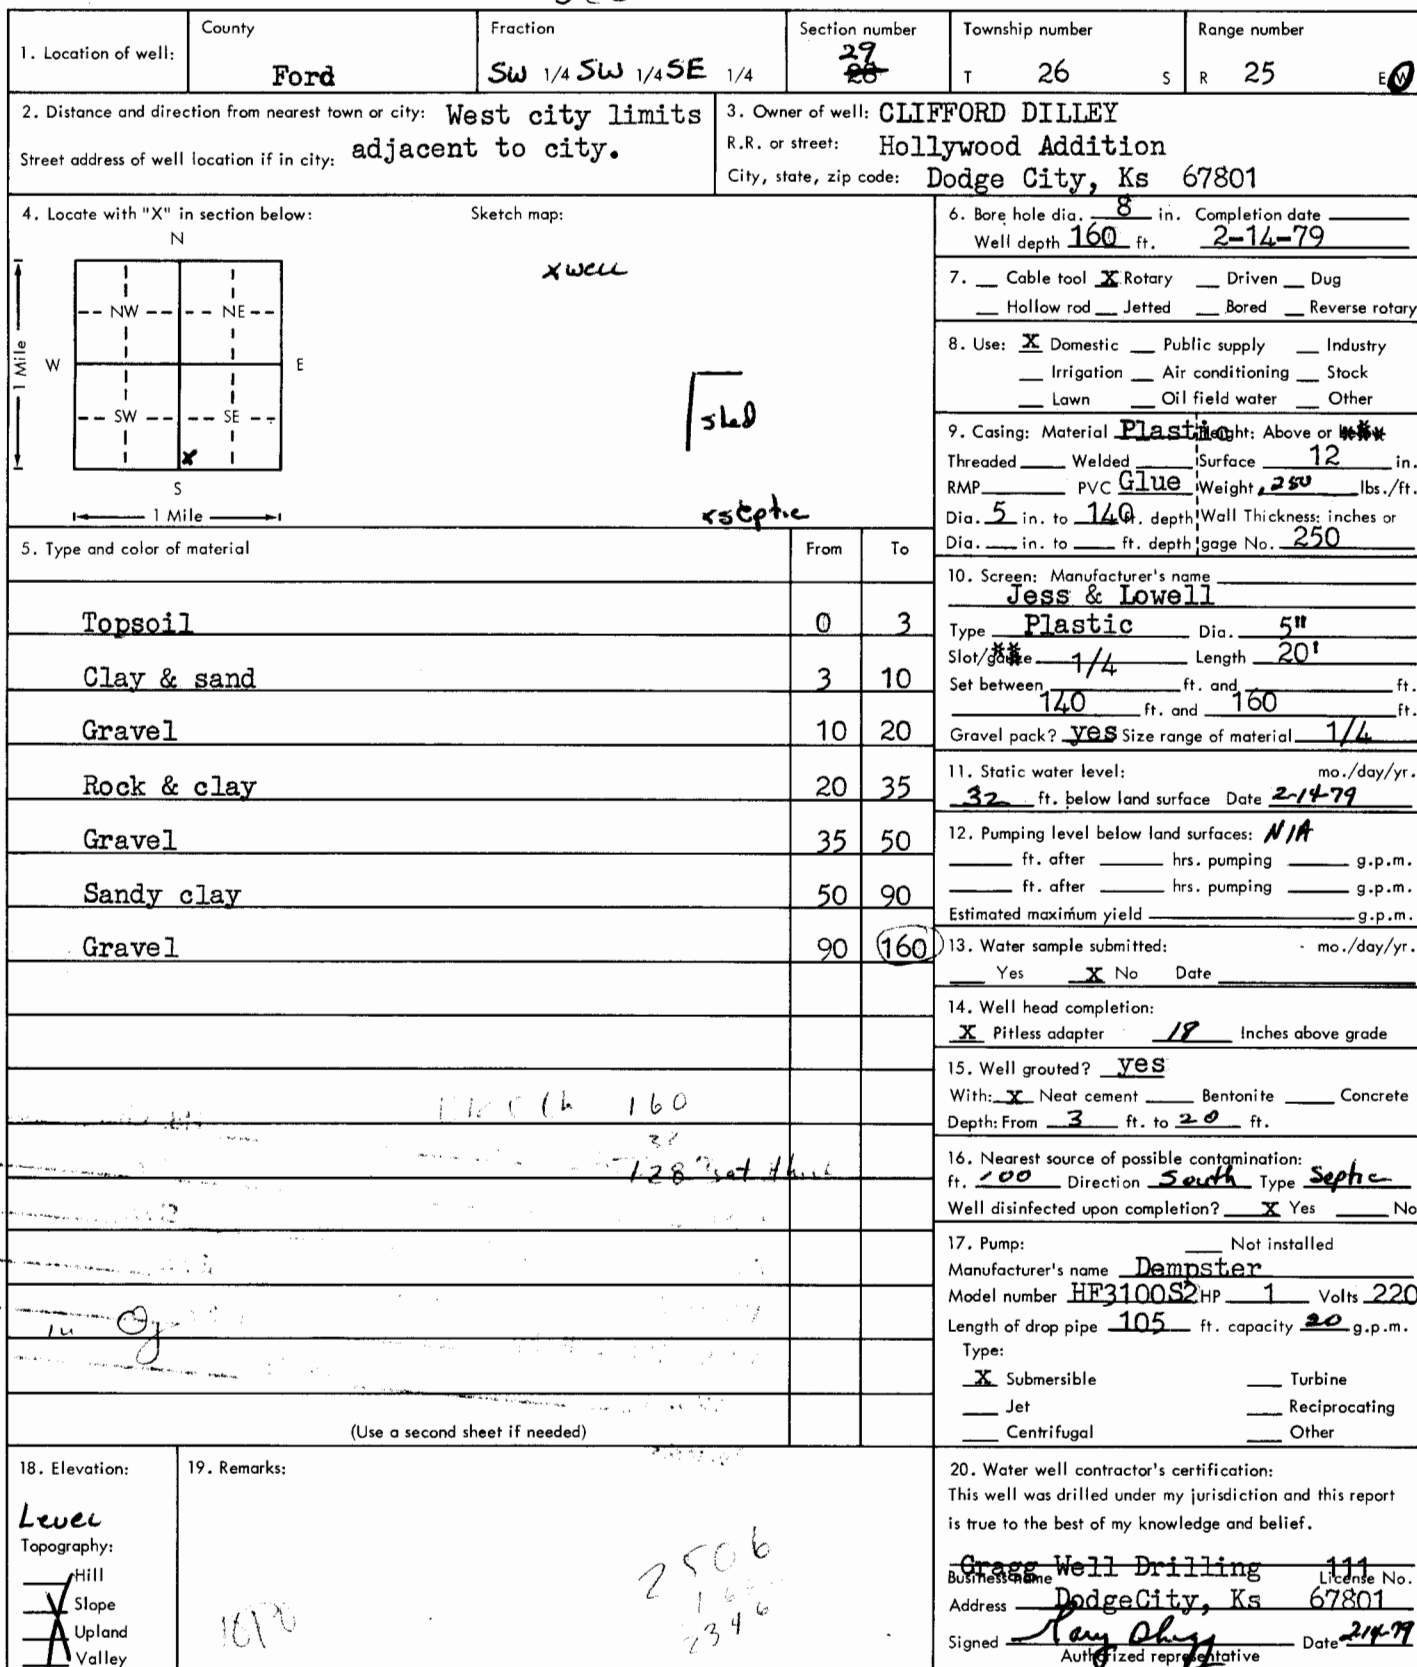 County Fraction Section number Township number Range number
1. Location of well: Ford SW 1/4 SW 1/4 SE 1/4 29 T 26 S R 25 E W
2. Distance and direction from nearest town or city: West city limits
Street address of well location if in city: adjacent to city.
3. Owner of well: CLIFFORD DILLEY
R.R. or street: Hollywood Addition
City, state, zip code: Dodge City, Ks 67801
4. Locate with "X" in section below: Sketch map:
N
x well
NW NE
1 Mile W E
SW SE
x
S
1 Mile
shed
x septic
5. Type and color of material From To
Topsoil 0 3
Clay & sand 3 10
Gravel 10 20
Rock & clay 20 35
Gravel 35 50
Sandy clay 50 90
Gravel 90 160
160
128
(Use a second sheet if needed)
6. Bore hole dia. 8 in. Completion date
Well depth 160 ft. 2-14-79
7. Cable tool X Rotary Driven Dug
Hollow rod Jetted Bored Reverse rotary
8. Use: X Domestic Public supply Industry
Irrigation Air conditioning Stock
Lawn Oil field water Other
9. Casing: Material Plastic Height: Above or
Threaded Welded Surface 12 in.
RMP PVC Glue Weight .250 lbs./ft.
Dia. 5 in. to 140 ft. depth Wall Thickness: inches or
Dia. in. to ft. depth gage No. 250
10. Screen: Manufacturer's name
Jess & Lowell
Type Plastic Dia. 5"
Slot/gauze 1/4 Length 20'
Set between ft. and ft.
140 ft. and 160 ft.
Gravel pack? yes Size range of material 1/4
11. Static water level: mo./day/yr.
32 ft. below land surface Date 2-14-79
12. Pumping level below land surfaces: N/A
ft. after hrs. pumping g.p.m.
ft. after hrs. pumping g.p.m.
Estimated maximum yield g.p.m.
13. Water sample submitted: mo./day/yr.
Yes X No Date
14. Well head completion:
X Pitless adapter 18 Inches above grade
15. Well grouted? yes
With: X Neat cement Bentonite Concrete
Depth: From 3 ft. to 20 ft.
16. Nearest source of possible contamination:
ft. 100 Direction South Type Septic
Well disinfected upon completion? X Yes No
17. Pump: Not installed
Manufacturer's name Dempster
Model number HF3100S2 HP 1 Volts 220
Length of drop pipe 105 ft. capacity 20 g.p.m.
Type:
X Submersible Turbine
Jet Reciprocating
Centrifugal Other
18. Elevation:
Level
Topography:
Hill
Slope
Upland
Valley
19. Remarks:
2506
2346
20. Water well contractor's certification:
This well was drilled under my jurisdiction and this report
is true to the best of my knowledge and belief.
Gragg Well Drilling 111
Business name License No.
Address DodgeCity, Ks 67801
Signed Date 2-14-79
Authorized representative